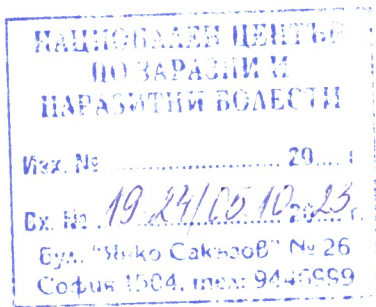 НАЦИОНАЛЕН ЦЕНТЪР
ПО ЗАРАЗНИ И
ПАРАЗИТНИ БОЛЕСТИ
Изх. № .................. 20..... г.
Вх. № 1924/05.10.2023 г.
Бул. "Янко Сакъзов" № 26
София 1504, тел.: 9446999